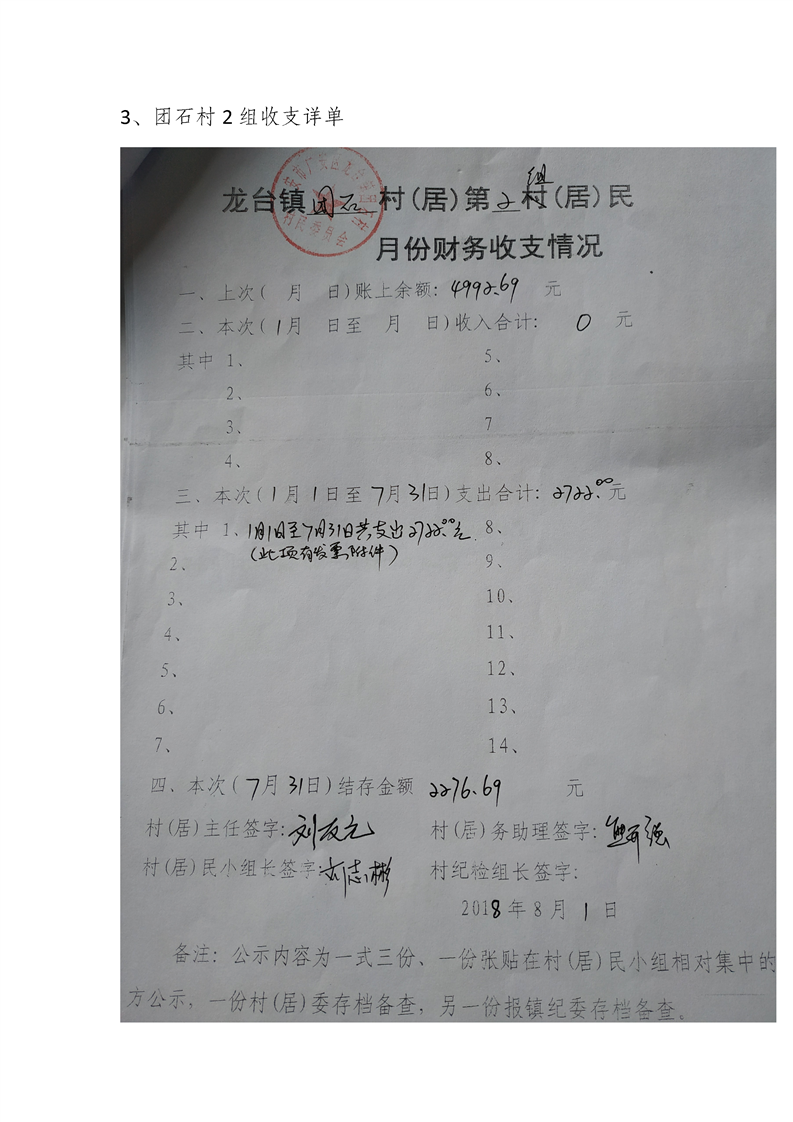 3、团石村2组收支详单
组
龙台镇团石村(居)第2村(居)民
村民委员会
月份财务收支情况
一、上次( 月 日)账上余额: 4992.69 元
二、本次(1月 日至 月 日)收入合计: 0 元
其中 1、 5、
2、 6、
3、 7
4、 8、
三、本次(1月1日至7月31日)支出合计: 2722.00元
其中 1、1月1日至7月31日共支出2722.00元. 8、
(此项有发票附件)
2、 9、
3、 10、
4、 11、
5、 12、
6、 13、
7、 14、
四、本次(7月31日)结存金额 2276.69 元
村(居)主任签字: 村(居)务助理签字:
村(居)民小组长签字: 村纪检组长签字:
2018年8月1日
备注: 公示内容为一式三份、一份张贴在村(居)民小组相对集中的
方公示, 一份村(居)委存档备查, 另一份报镇纪委存档备查。